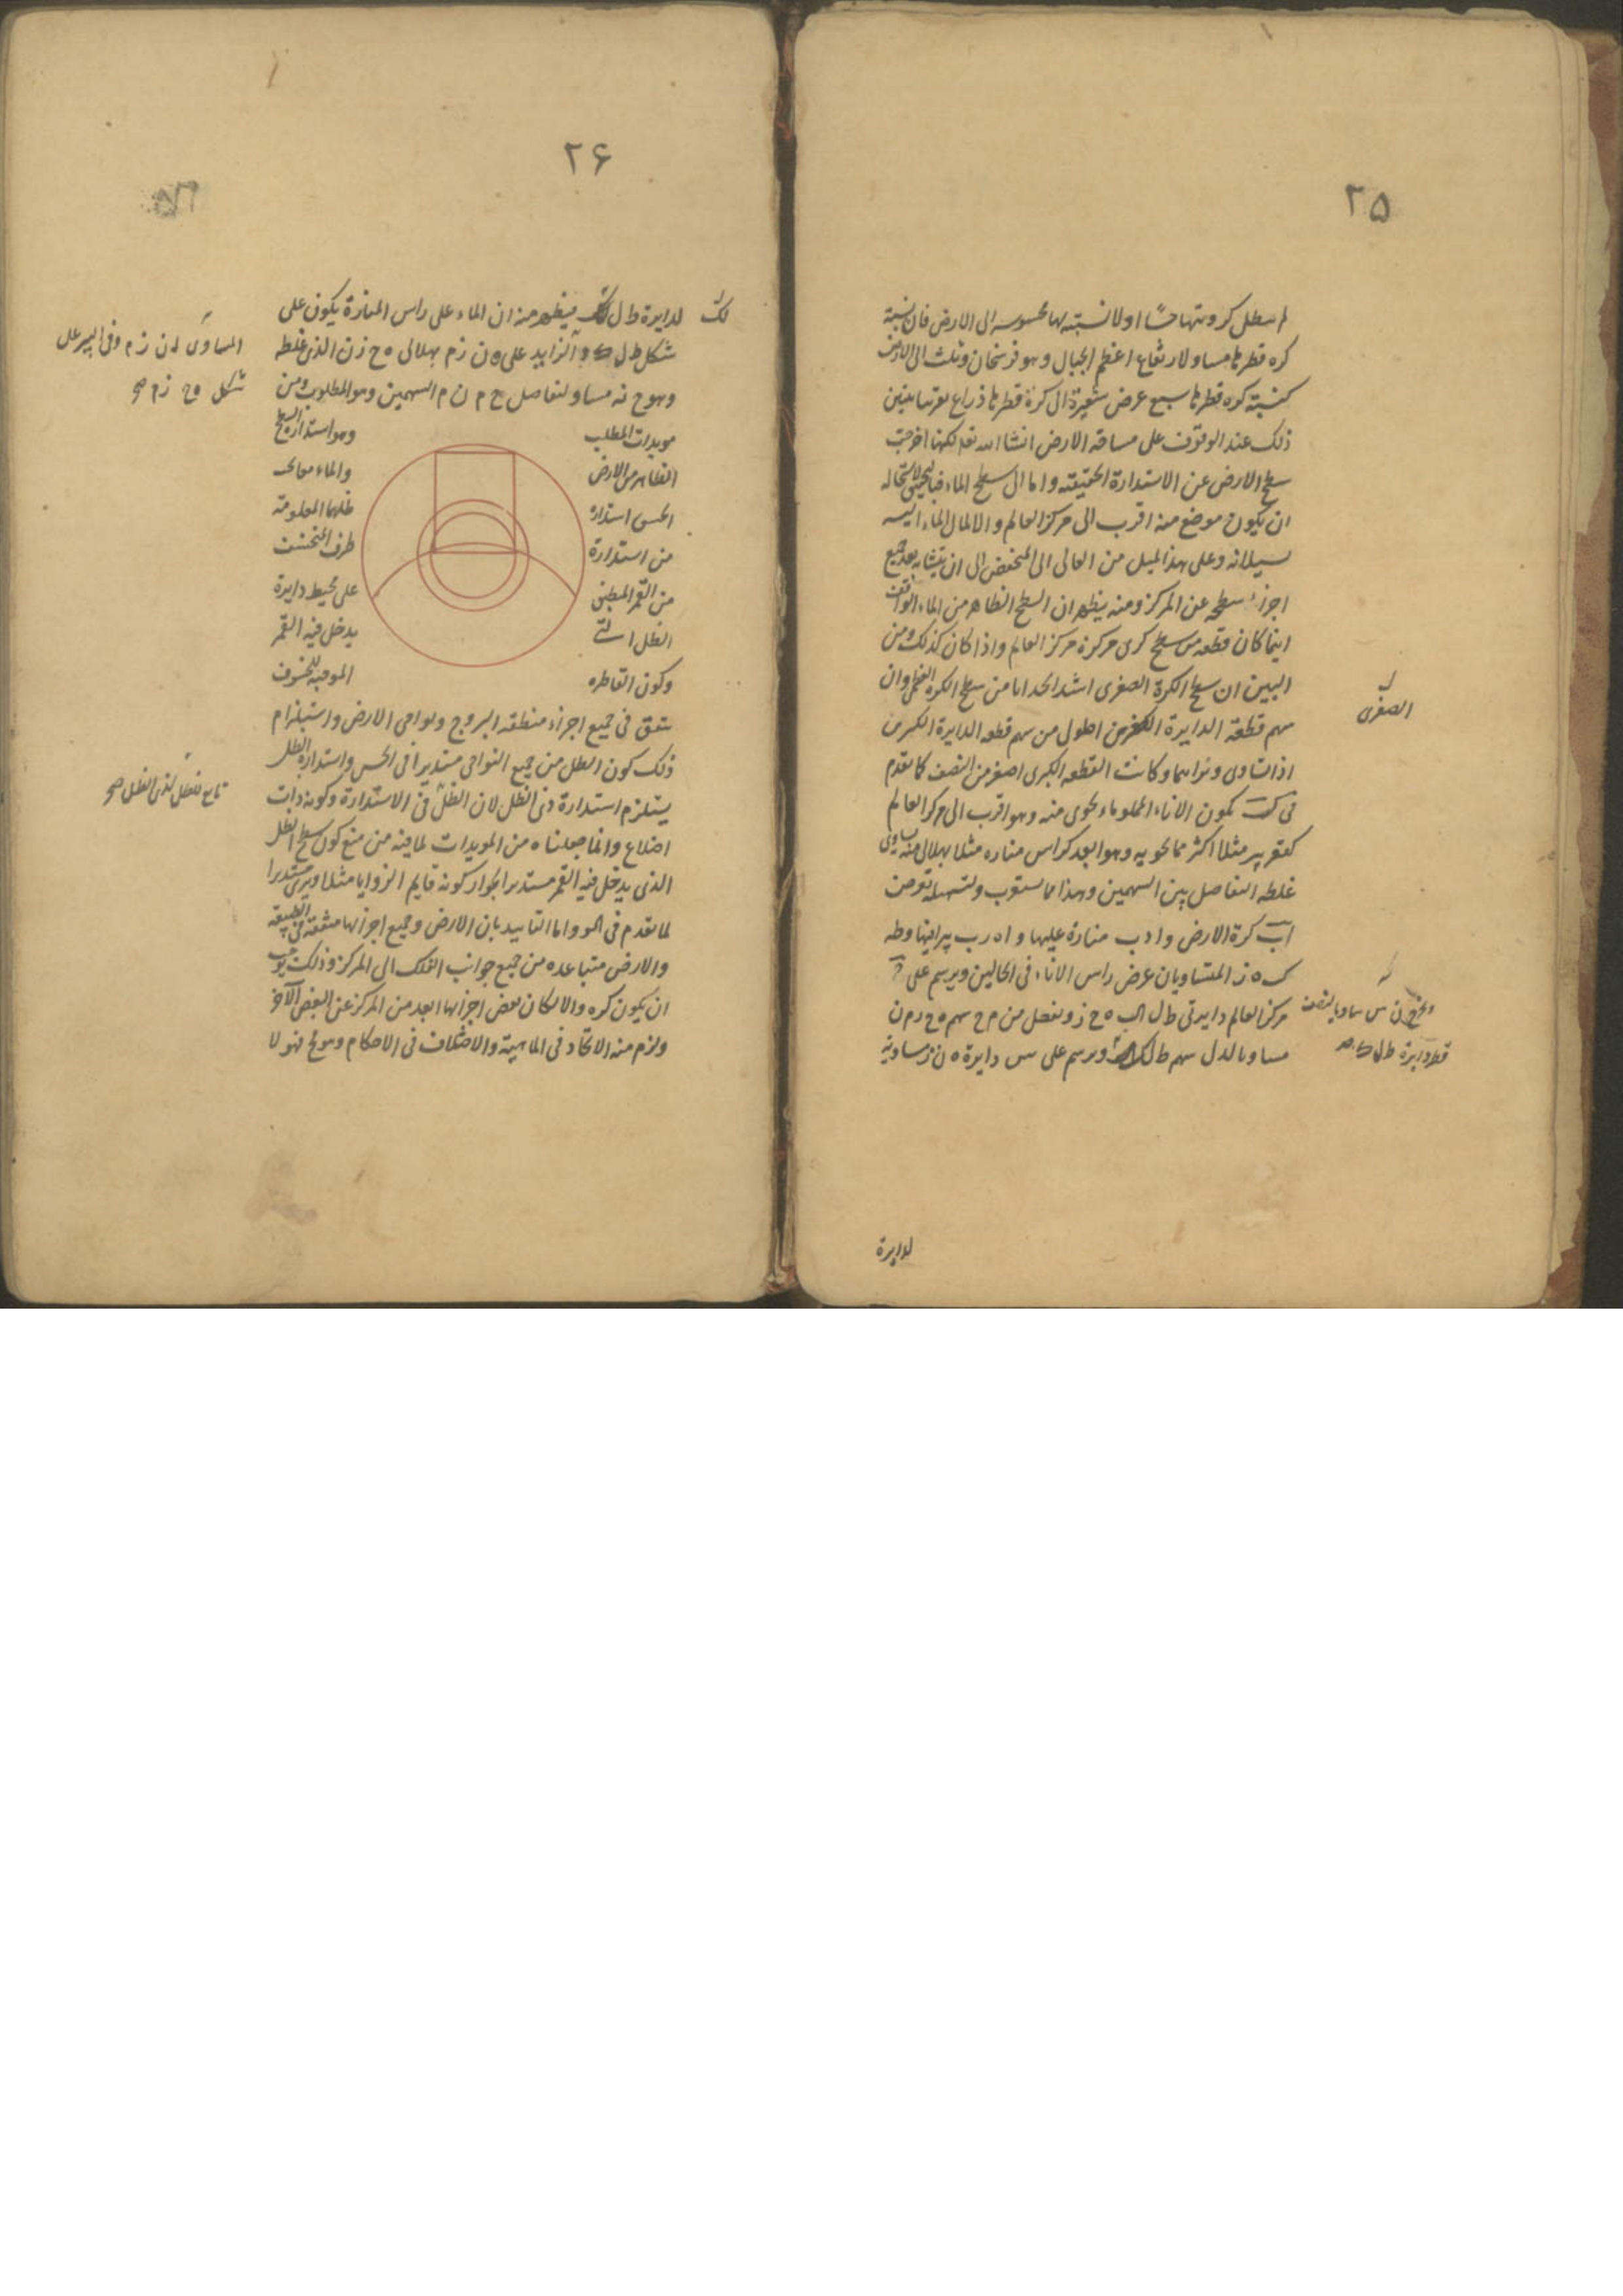 ٢۵
لم تبطل كرويتها حسًا اذ لا نسبة لها محسوسة الى الارض فان نسبة
كرة قطرها مساو لارتفاع اعظم الجبال وهو فرسخان وثلث الى الارض
كنسبة كرة قطرها سبع عرض شعيرة الى كرة قطرها ذراع
ذلك عند الوقوف على مساحة الارض انشا الله تعا لكنها اخرجت
سطح الارض عن الاستدارة الحقيقية واما ان سطح الماء لاستحالة
ان يكون موضع منه اقرب الى مركز العالم والا لمال الماء اليه
سيلانه وعلى هذا الميل من العالى الى المنخفض الى ان يتشابه بعد جميع
اجزاء سطحه عن المركز ومنه يظهر ان السطح الظاهر من الماء الواقف
اينما كان قطعة من سطح كرى مركزه مركز العالم واذا كان كذلك ومن
البين ان سطح الكرة الصغرى اشد احديدابا من سطح الكرة العظمى وان
سهم قطعة الدايرة الصغرى اطول من سهم قطعة الدايرة الكبرى
اذا تساوى وتراهما وكانت القطعة الكبرى اصغر من النصف كما تقدم
فى يكون الاناء المملو ماء يحوى منه وهو اقرب الى مركز العالم
كقعر بير مثلا اكثر مما يحويه وهو ابعد كراس منارة مثلا بهلالى منه يساوى
غلظه التفاضل بين السهمين وهذا مما يستغرب ولتسهيله نفرض
اب كرة الارض و ا د ب منارة عليها و ا ه ر ب بيرا فيها وطه
ك ه ز المتساويان عرض راس الاناء فى الحالين ويرسم على
مركز العالم دايرتى ط ل ك ه ح ز ونفصل من م ح سهم ه ح ز م ن
مساويا لـ سهم ط ل ك ويرسم على س دايرة ه ن ز مساوية
الصغرى
قطر دايرة ط ل ك صح
لدايرة
٢۶
لدايرة ط ل ك فيظهر منه ان الماء على راس المنارة يكون على
شكل ط ل ك و الزايد على ه ن ز م بهلالى ه ح ز ن الذى غلظه
وهو ح ن مساو لتفاضل ح م ن م السهمين وهو المطلوب ومن
مويدات المطلب وهو استدارة سطح
الظاهر من الارض والماء
الحس استدارة ظلها المعلومة
من استدارة طرف المنخسف
من القمر المنطبق على محيط دايرة
الظل التى يدخل فيه القمر
وكون القاطرة الموجبة للخسوف
يتفق فى جميع اجزاء منطقة البروج ونواحى الارض واستلزام
ذلك كون الظل من جميع النواحى مستديرا فى الحس واستدارة الظل
يستلزم استدارة ذى الظل لان الظل فى الاستدارة وكونه ذات
اضلاع وانما جعلناه من المويدات لما فيه من منع كون سطح الظل
الذى يدخل فيه القمر مستديرا لجواز كونه قايم الزوايا مثلا ويرى مستديرا
لما تقدم فى واما التاييد بان الارض وجميع اجزائها متفقة فى الطبيعة
والارض متباعدة من جميع جوانب الفلك الى المركز وذلك يوجب
ان يكون كره والا لكان بعض اجزائها ابعد من المركز عن البعض الآخر
ولزم منه الاتحاد فى الماهية والاختلاف فى الاحكام وهو مح فهو لا
لك
المساوى ل ه ن ز م وفى البير على
شكل ه ح ز م صح
تابع لشكل لذى الظل صح